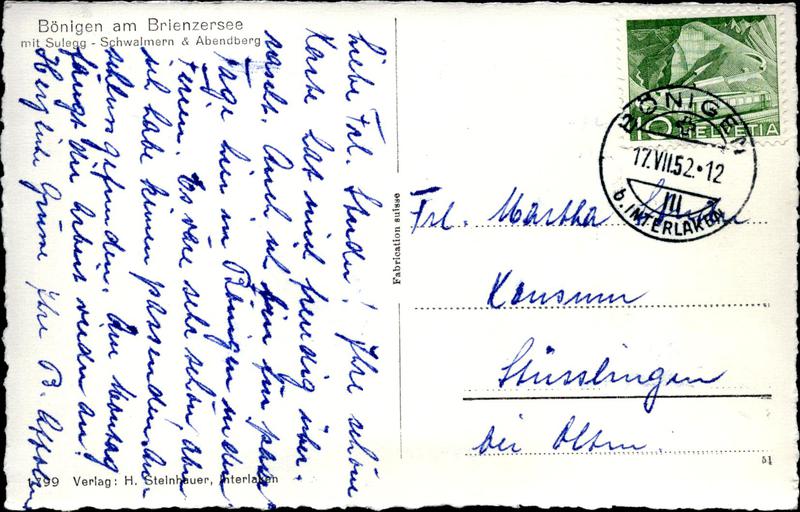 Bönigen am Brienzersee
mit Sulegg - Schwalmern & Abendberg
Liebe Frl. Studer! Ihre schöne
Karte hat mich freudig über-
rascht. Auch ich bin ein paar
Tage hier in Bönigen in den
Ferien. Es wäre sehr schön aber
ich habe keinen passenden An-
schluss gefunden. Am Montag
fängt die Arbeit wieder an.
Herzliche Grüsse Ihre B.
1799 Verlag: H. Steinhauer, Interlaken
Fabrication suisse
HELVETIA
10
BÖNIGEN
17.VII.52·12
b. INTERLAKEN
Frl. Martha Studer
Konsum
Stüsslingen
bei Olten.
51